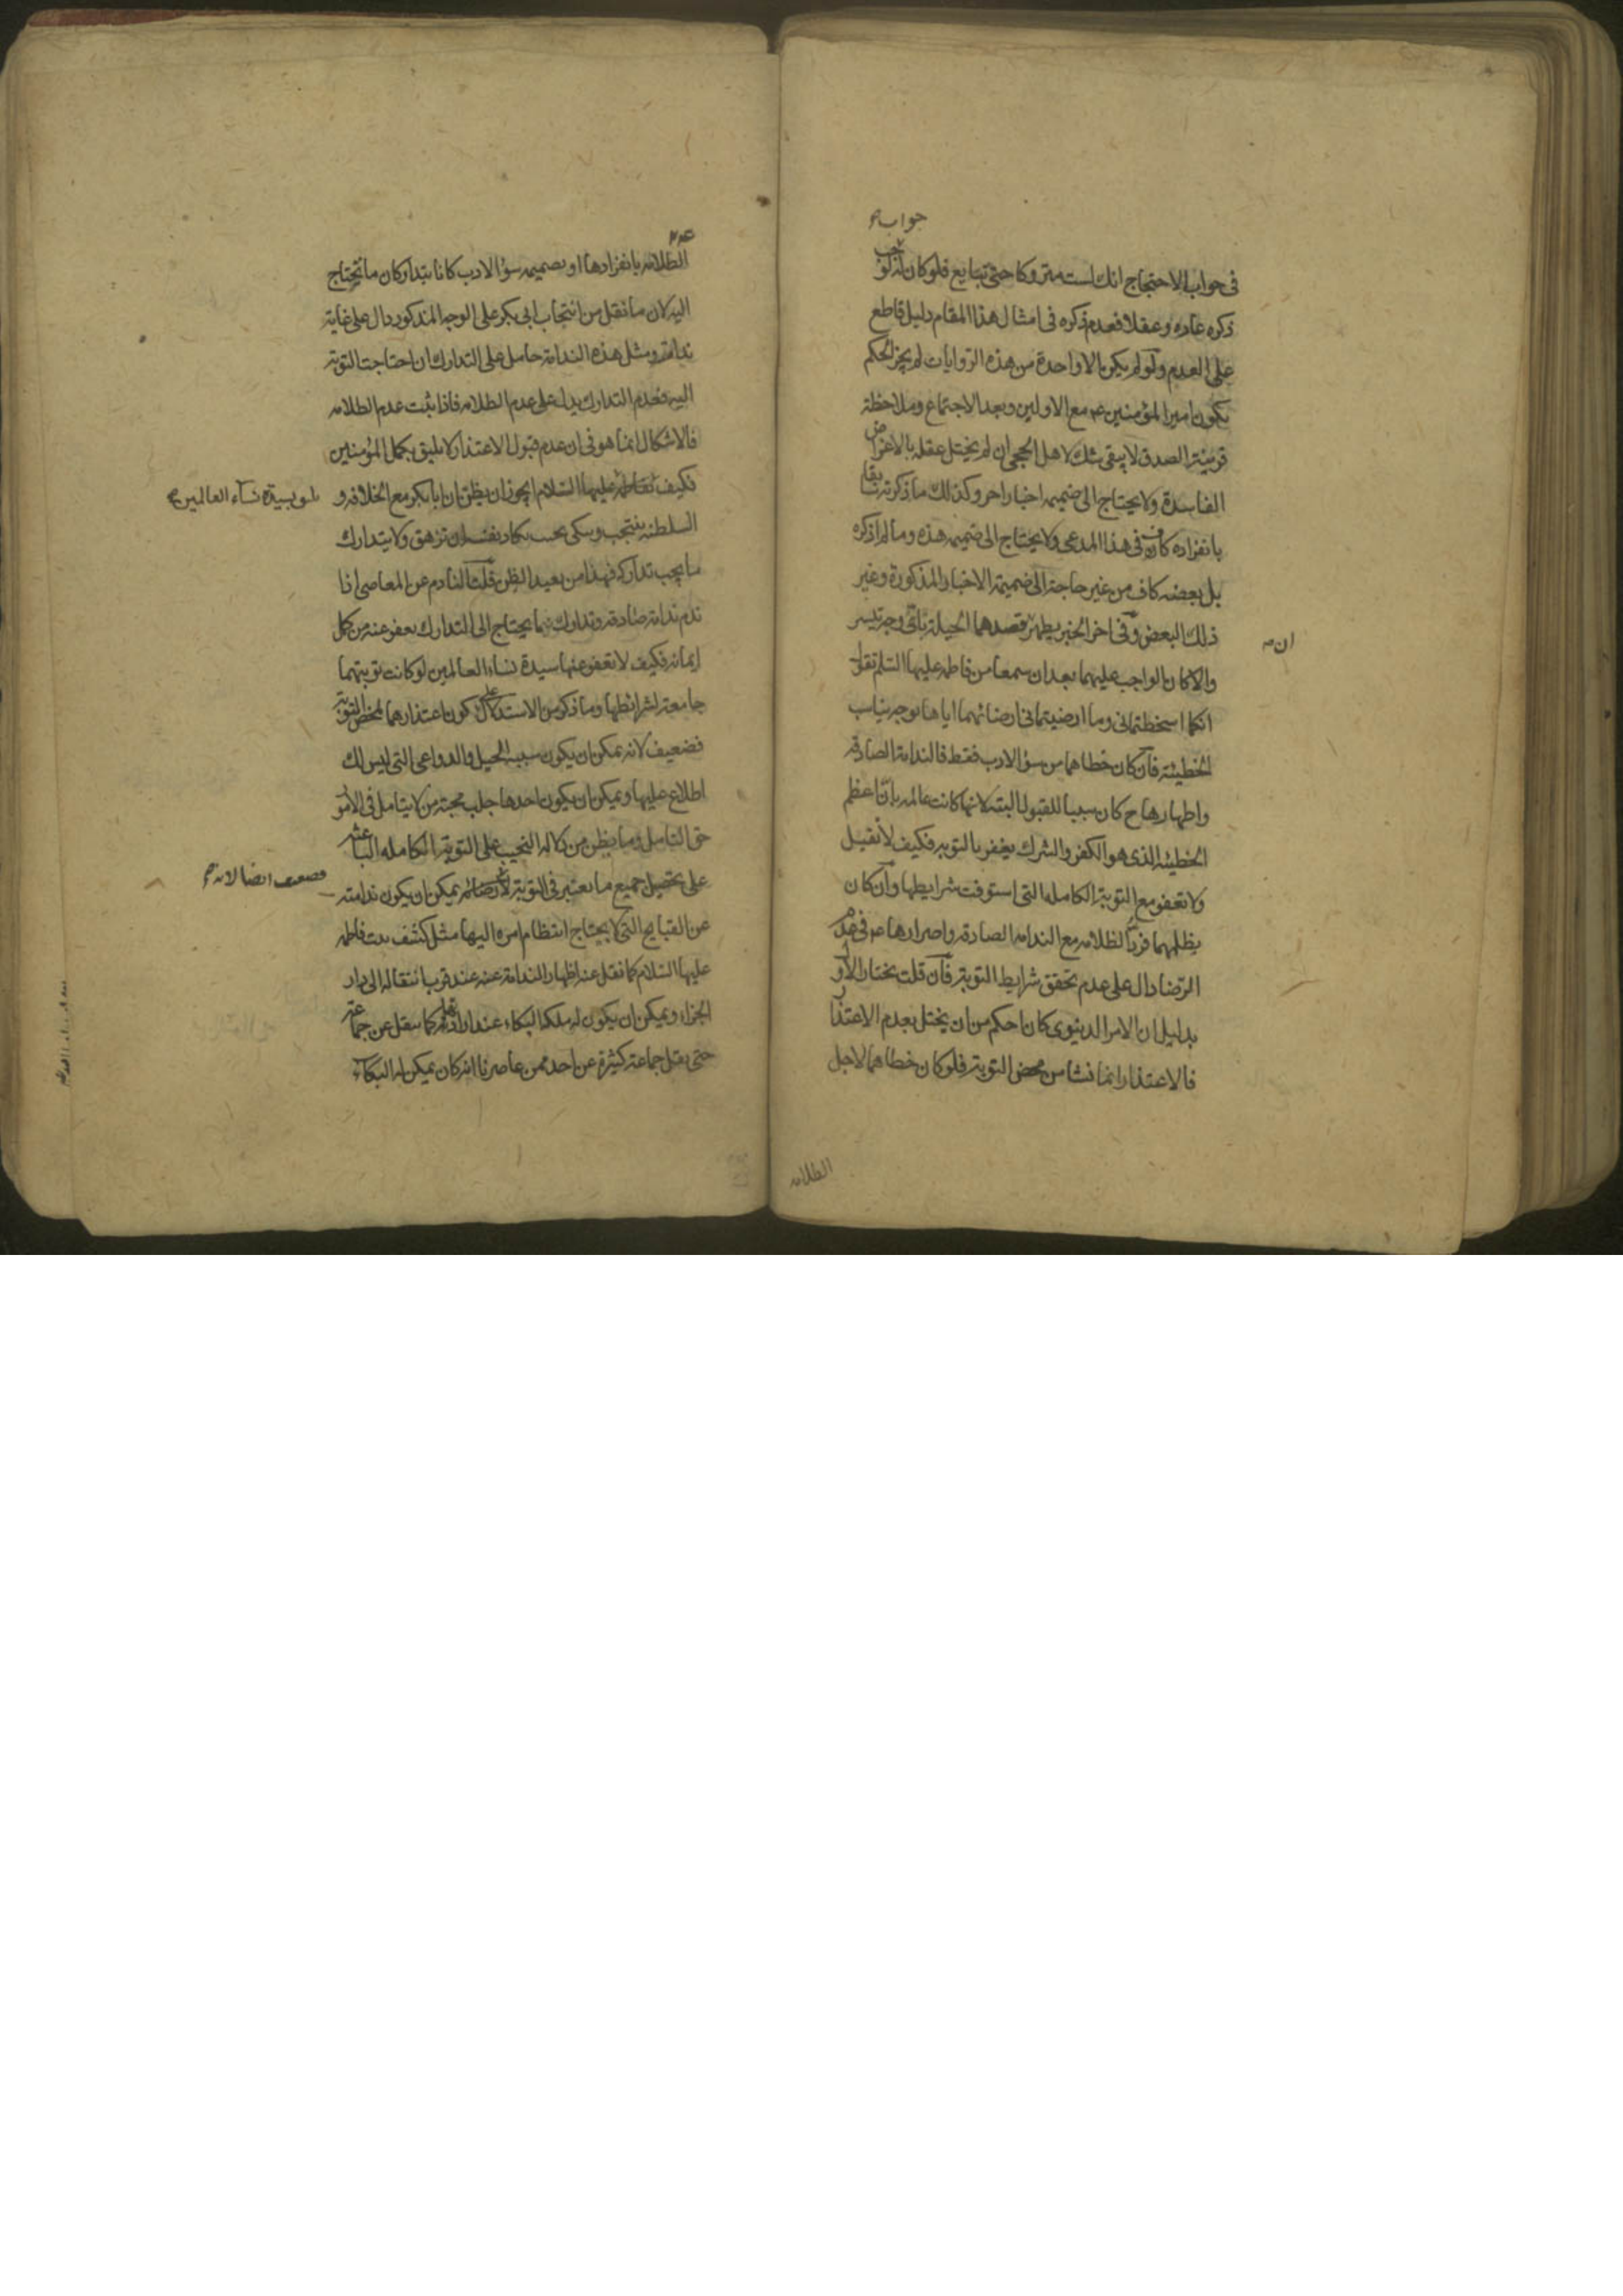 جواب
في جواب الاحتجاج انك لست متروكا حتى تبايع فلو كان له لوجب
ذكره عادة وعقلا فعدم ذكره في امثال هذا المقام دليل قاطع
على العدم ولو لم يكن الا واحدة من هذه الروايات لم يجز الحكم
بكون امير المؤمنين ع مع الاولين وبعد الاجتماع وملاحظة
قرينة الصدق لا يبقى شك لاهل الحجى ان لم يختل عقله بالاغراض
الفاسدة ولا يحتاج الى ضميمة اخبار اخر وكذلك ما ذكرته سابقا
بانفراده كاف في هذا المدعى ولا يحتاج الى ضميمة هذه وما لم اذكره
بل بعضه كاف من غير حاجة الى ضميمة الاخبار المذكورة وغير
ذلك البعض وفي اخر الخبر يظهر قصدهما الحيلة باي وجه تيسر
ان
والا كان الواجب عليهما بعد ان سمعا من فاطمة عليها السلم تقول
انكما اسخطتماني وما ارضيتماني ارضائهما اياها بوجه يناسب
الخطيئة فان كان خطاهما من سوء الادب فقط فالندامة الصادقة
واظهارها ح كان سببا للقبول البتة لانها كانت عالمة بان اعظم
الخطيئة الذي هو الكفر والشرك يغفر بالتوبة فكيف لا تقبل
ولا تعفو مع التوبة الكاملة التي استوفت شرايطها وان كان
يظلمهما فرد الظلامة مع الندامة الصادقة واصرارها ع في عدم
الرضا دال على عدم تحقق شرايط التوبة فان قلت يختار الاول
بدليل ان الامر الدنيوي كان احكم من ان يختل بعدم الاعتذار
فالاعتذار انما نشا من محض التوبة فلو كان خطاهما لاجل
الظلامة
الظلامة بانفرادها او بضميمة سوء الادب كانا يتداركان ما يحتاج
اليه لان ما نقل من انتحاب ابي بكر على الوجه المذكور دال على غاية
ندامته ومثل هذه الندامة حامل على التدارك ان احتاجت التوبة
اليه فعدم التدارك يدل على عدم الظلامة فاذا ثبت عدم الظلامة
فالاشكال انما هو في ان عدم قبول الاعتذار لا يليق بكمل المؤمنين
فكيف بفاطمة عليها السلام ايجوز ان يظن ان ابا بكر مع الخلافة و
بسيدة نساء العالمين
السلطنة ينتحب ويبكي بحيث يكاد نفسه ان تزهق ولا يتدارك
ما يجب تداركه فهذا من بعيد الظن قلت النادم عن المعاصي اذا
ندم ندامة صادقة وتدارك بما يحتاج الى التدارك يعفو عنه من كمل
ايمانه فكيف لا تعفو عنها سيدة نساء العالمين لو كانت توبتهما
جامعة لشرائطها وما ذكر من الاستدلال على كون اعتذارهما لمحض التوبة
فضعيف لانه يمكن ان يكون سببه الحيل والدواعي التي ليس لك
اطلاع عليها ويمكن ان يكون احدها جلب محبة من لا يتامل في الامور
حق التامل وما يظن من دلالة النحيب على التوبة الكاملة الباعثة
على تحصيل جميع ما يعتبر في التوبة يمكن ان يكون ندامته
فضعيف ايضا لانه
عن القبايح التي لا يحتاج انتظام امره اليها مثل كشف بيت فاطمة
عليها السلام كما نقل عنه اظهار الندامة عنه عند قرب انتقاله الى دار
الجزاء ويمكن ان يكون له ملكة البكاء عند ارادته كما ينقل عن جماعة
حتى ينقل جماعة كثيرة عن احد ممن عاصرنا انه كان يمكن له البكاء